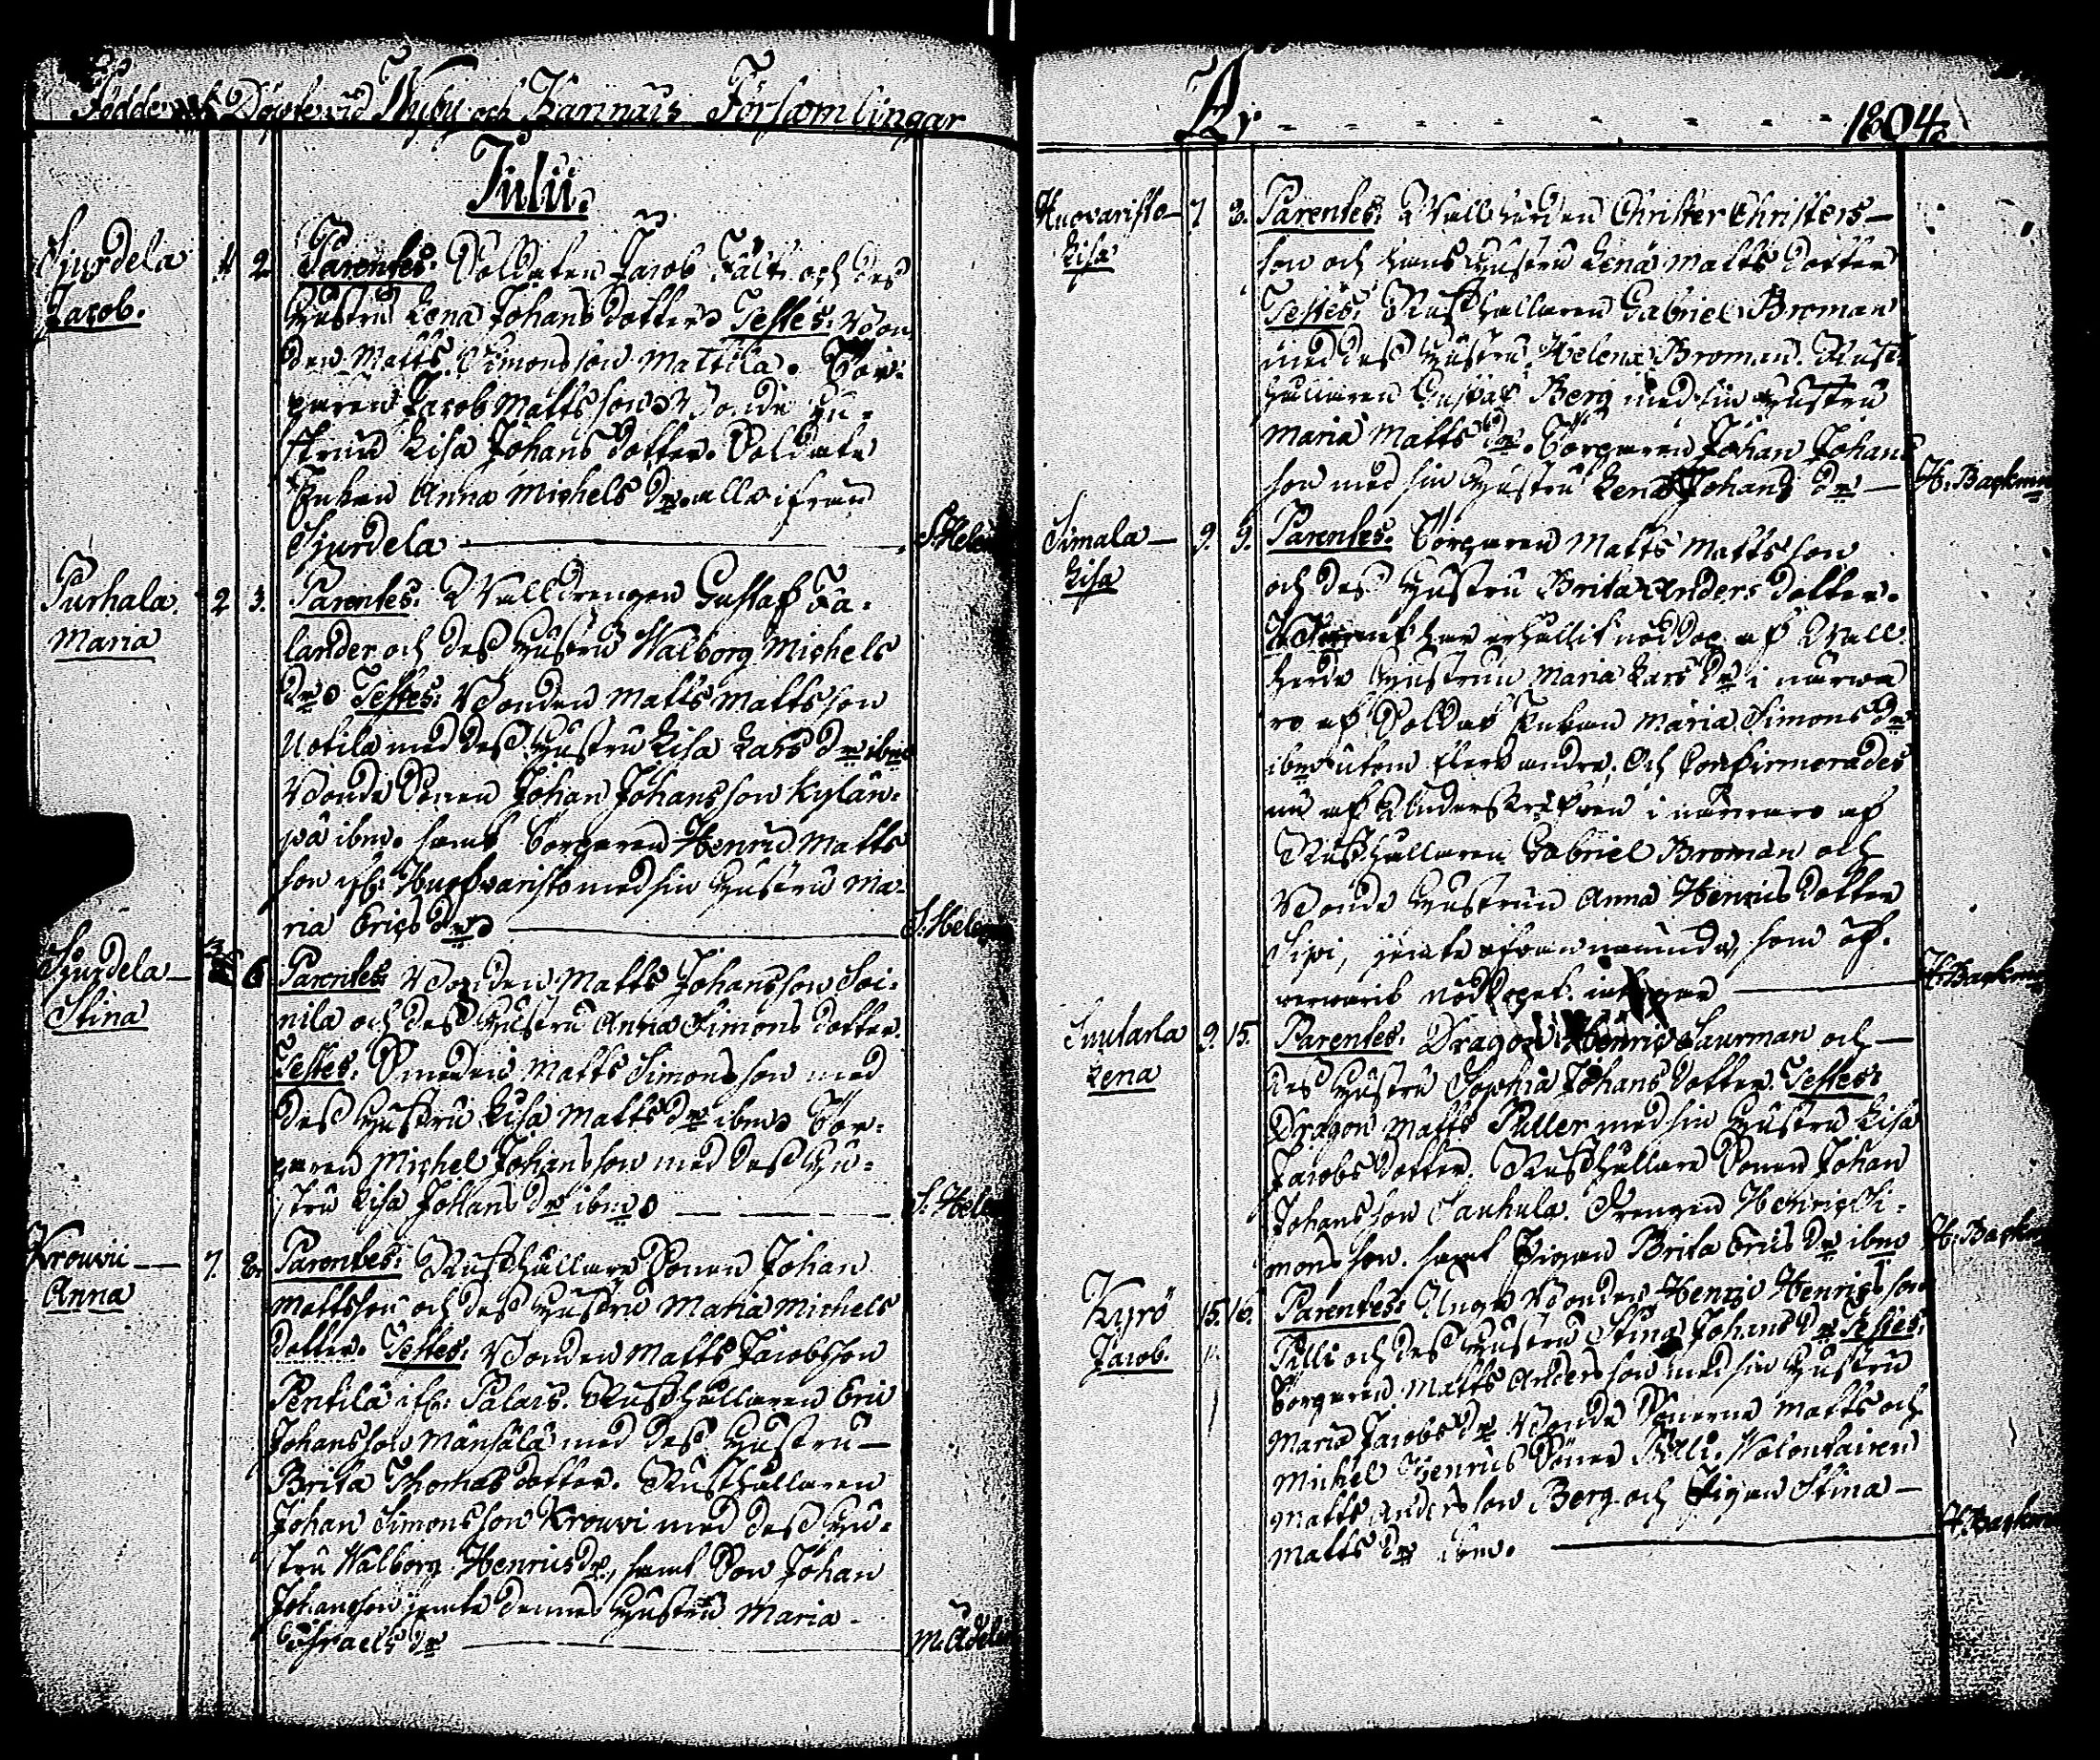 Födde och Döpte vid Nyby och Karinais Församlingar
Julii.
Sjurdela 1 2. Parentes: Soldaten Jacob Fält och des
Jacob. Hustru Lena Johans dotter. Testes: Bon-
den Matts Simonsson Mattila. Tor-
paren Jacob Mattsson. Bonde Hu-
strun Lisa Johans dotter. Soldate
Enkan Anna Michels dr. alla ifrån
Sjurdela S. Helen
Purhala. 2 3. Parentes: Walldrengen Gustaf Fa-
Maria lander och dess Hustru Walborg Michels
dr. Testes: Bonden Matts Mattsson
Uotila med dess Hustru Lisa Lars dr ibm
Bonde Sonen Johan Johansson Kylän-
pä ibm. samt Torparen Henric Matts
son ifr: Huovaristo med sin Hustru Ma-
ria Erics dr S. Helen
Sjurdela 6 Parentes: Bonden Matts Johansson Soi-
Stina nila och dess Hustru Anna Simons dotter.
Testes: Smeden Matts Simonsson med
dess Hustru Lisa Matts dr ibm Tor-
paren Michel Johansson med dess Hu-
stru Lisa Johans dr ibm S. Helen
Krouvi 7. 8. Parentes: Rusthållare Sonen Johan
Anna Mattsson och dess Hustru Maria Michels
dotter. Testes: Bonden Matts Jacobsson
Pentilä ifr: Palais. Rusthållaren Eric
Johansson Mänsälä med dess Hustru
Brita Thomasdotter. Rusthållaren
Johan Simonsson Krouvi med dess Hu-
stru Walborg Henricsdr, samt Son Johan
Johansson jemte dennes Hustru Maria
Israels dr M. Adelin
År 1804.
Huovaristo 7 8. Parentes: Wallherden Christer Christers-
Lisa son och hans Hustru Lena Matts dotter
Testes: Rusthållaren Gabriel Broman
med dess Hustru Helena Broman. Rust-
hållaren Gustaf Berg med sin Hustru
Maria Matts dr. Torparen Johan Johans
son med sin Hustru Lena Johans dr H. Backman
Simala 9. 9. Parentes: Torparen Matts Mattsson
Lisa och dess Hustru Brita Anders dotter.
har erhållit nöddop af Wall
herde Hustrun Maria Lars dr i närva
ro af Soldat Enkan Maria Simons dr
ibm utom flere andra. Och Confirmerades
nu af Underskrifven i närvaro af
Rusthållaren Gabriel Broman och
Bonde Hustrun Anna Henrics dotter
Sipi, jemte ofvannämnda, som öf-
vervarit nöddopet. H. Backman
Suutarla 9. 15. Parentes. Dragon Henric Saurman och
Lena des Hustru Sophia Johans dotter. Testes:
Dragon Matts Puller med sin Hustru Lisa
Jacobs dotter. Rusthållare Sonen Johan
Johansson Sauhula. Drengen Henric Si-
monsson. samt Pigan Brita Erics dr ibm H. Backman
Kyrö 15. 16. Parentes: Unga Bonden Henric Henricsson
Jacob. Pilli och dess Hustru Stina Johans dr Testes:
Torparen Matts Andersson med sin Hustru
Maria Jacobs dr Bonde Sönerna Matts och
Michel Henrics Söner Pilli. Volontairen
Matts Andersson Berg och Pigan Stina
Matts dr ibm. H. Backman